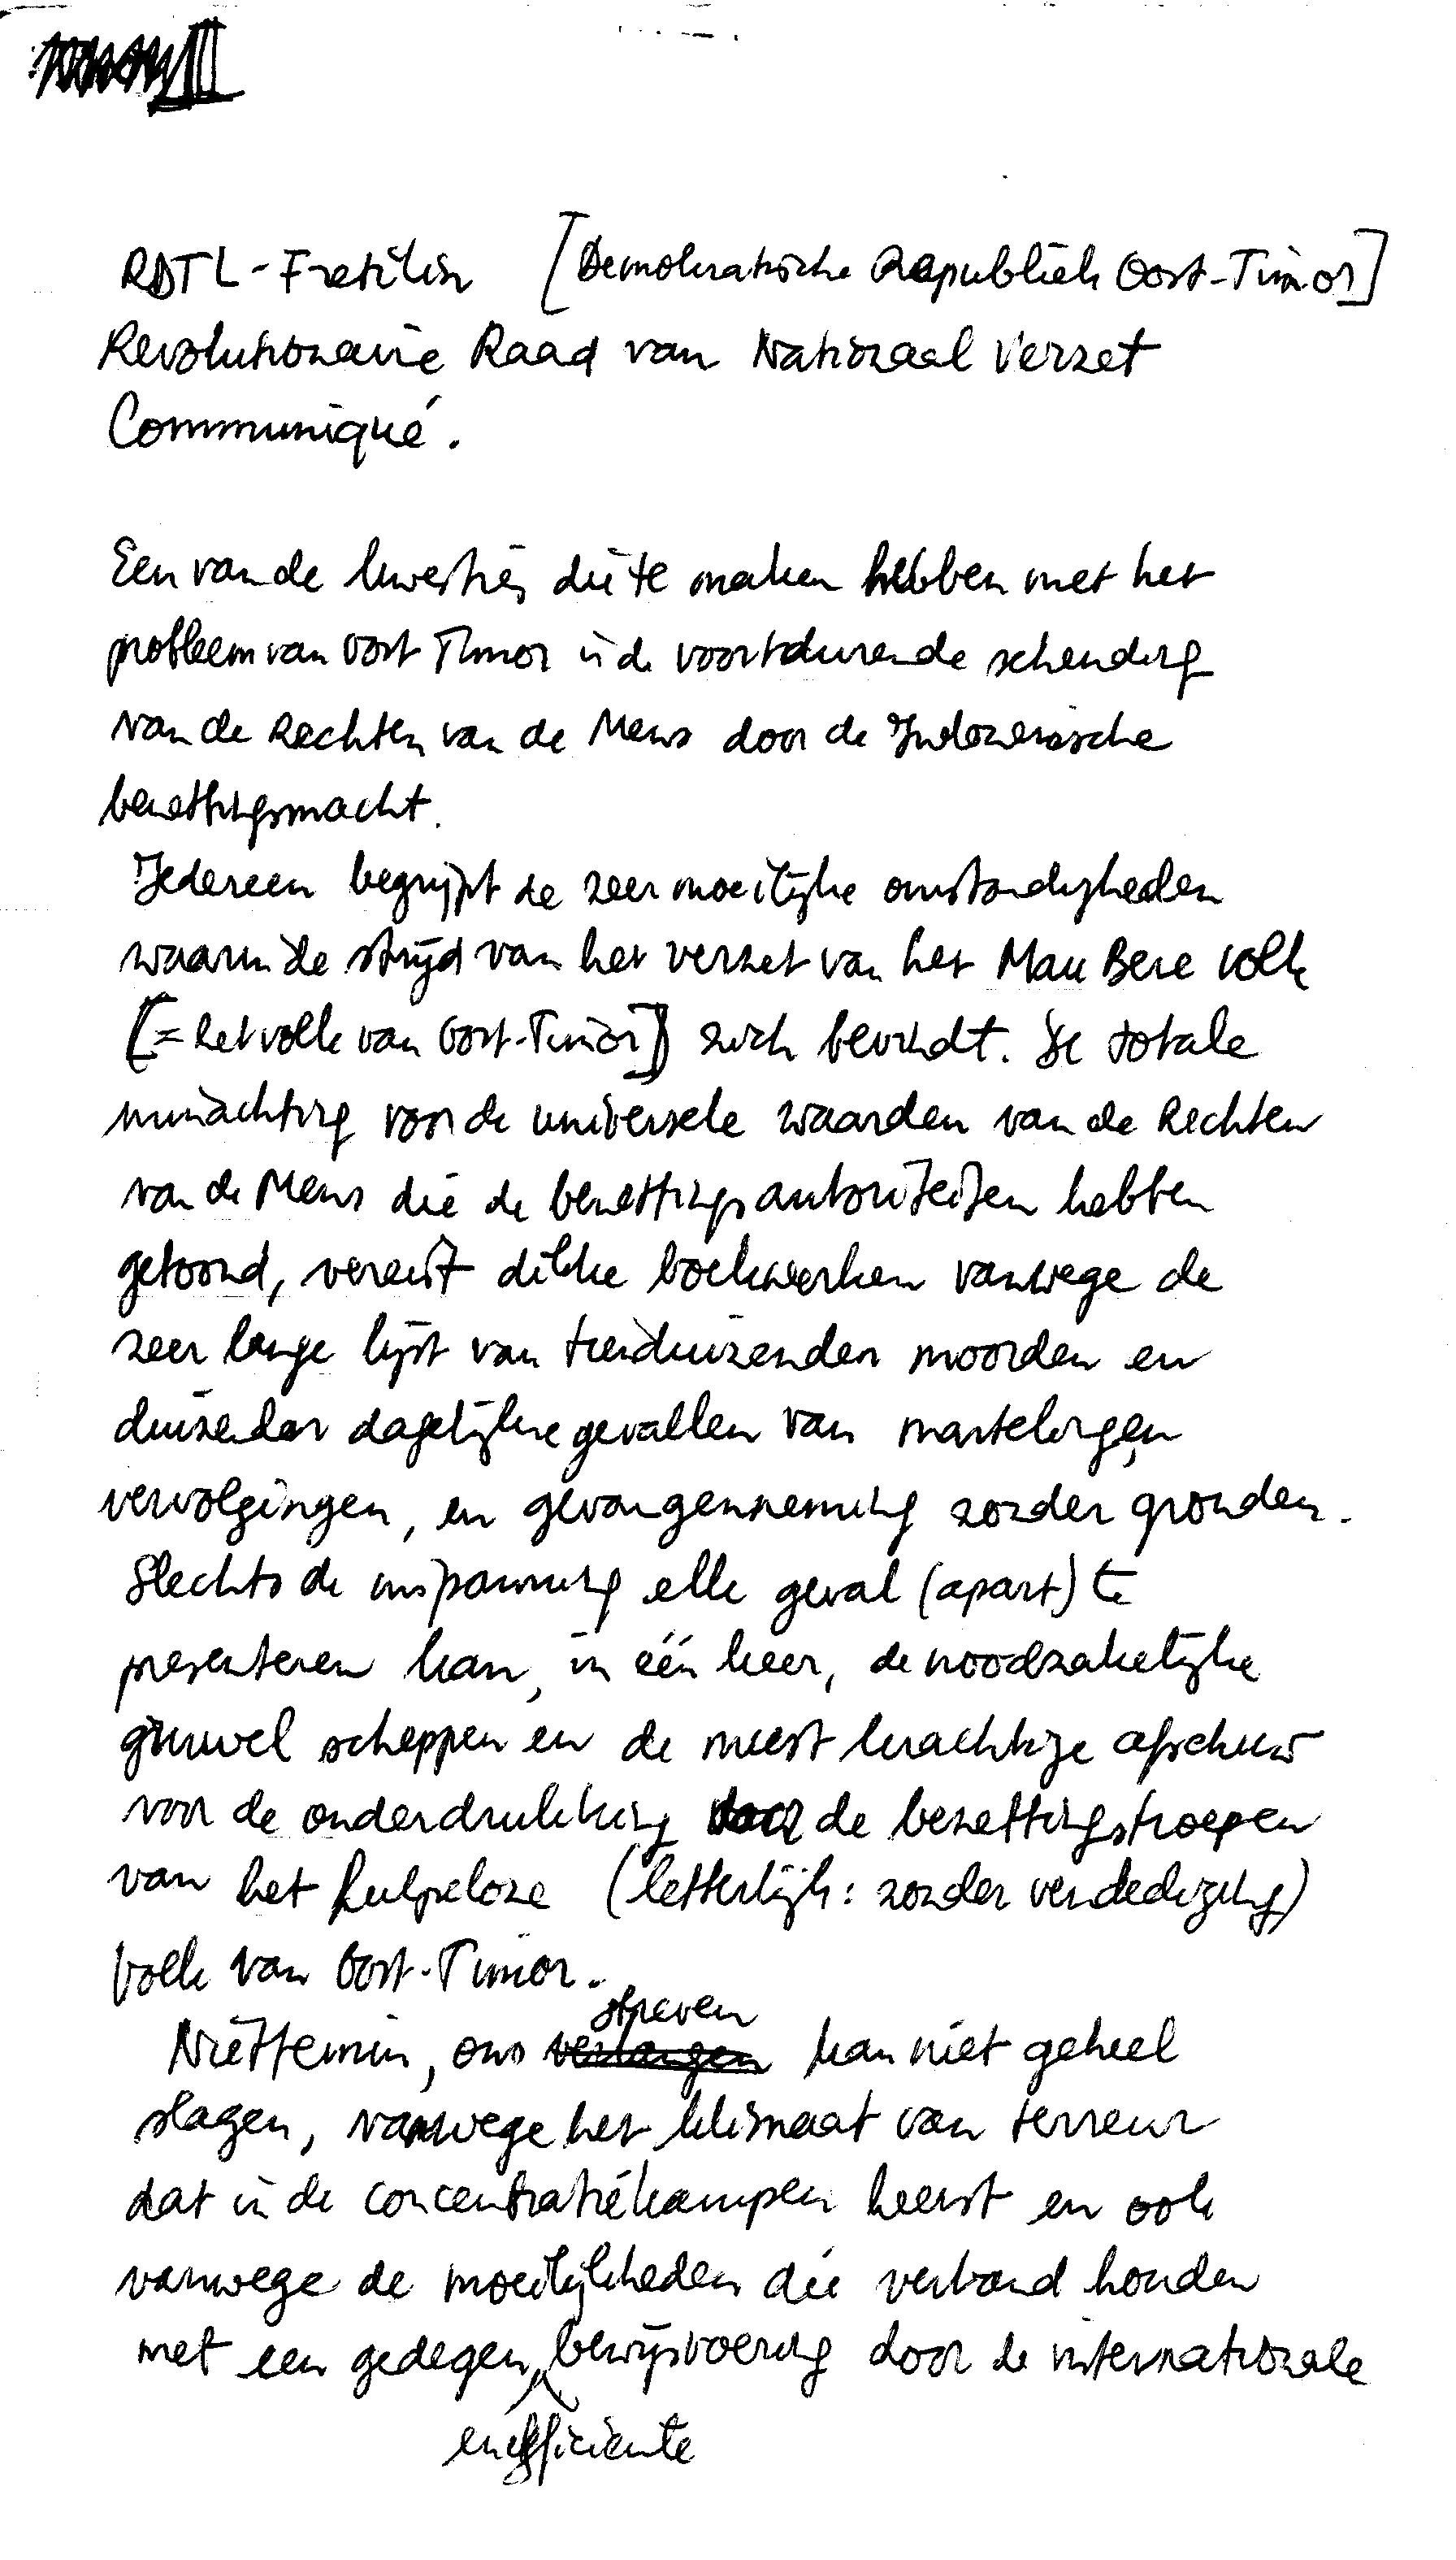 III
RDTL-Fretilin [Demokratische Republiek Oost-Timor]
Revolutionaire Raad van Nationaal Verzet
Communiqué.
Een van de kwesties die te maken hebben met het
probleem van Oost Timor is de voortdurende schending
van de Rechten van de Mens door de Indonesische
bezettingsmacht.
Iedereen begrijpt de zeer moeilijke omstandigheden
waarin de strijd van het verzet van het Mau Bere volk
[= het volk van Oost-Timor] zich bevindt. De totale
minachting voor de universele waarden van de Rechten
van de Mens die de bezettingsautoriteiten hebben
getoond, vereist dikke boekwerken vanwege de
zeer lange lijst van tienduizenden moorden en
duizenden dagelijkse gevallen van martelingen,
vervolgingen, en gevangenneming zonder gronden.
Slechts de inspanning elk geval (apart) te
presenteren kan, in één keer, de noodzakelijke
gruwel scheppen en de meest krachtige afschuw
voor de onderdrukking door de bezettingstroepen
van het hulpeloze (letterlijk: zonder verdediging)
volk van Oost-Timor.
streven
Niettemin, ons verlangen kan niet geheel
slagen, vanwege het klimaat van terreur
dat in de concentratiekampen heerst en ook
vanwege de moeilijkheden die verband houden
met een gedegen bewijsvoering door de internationale
en efficiënte